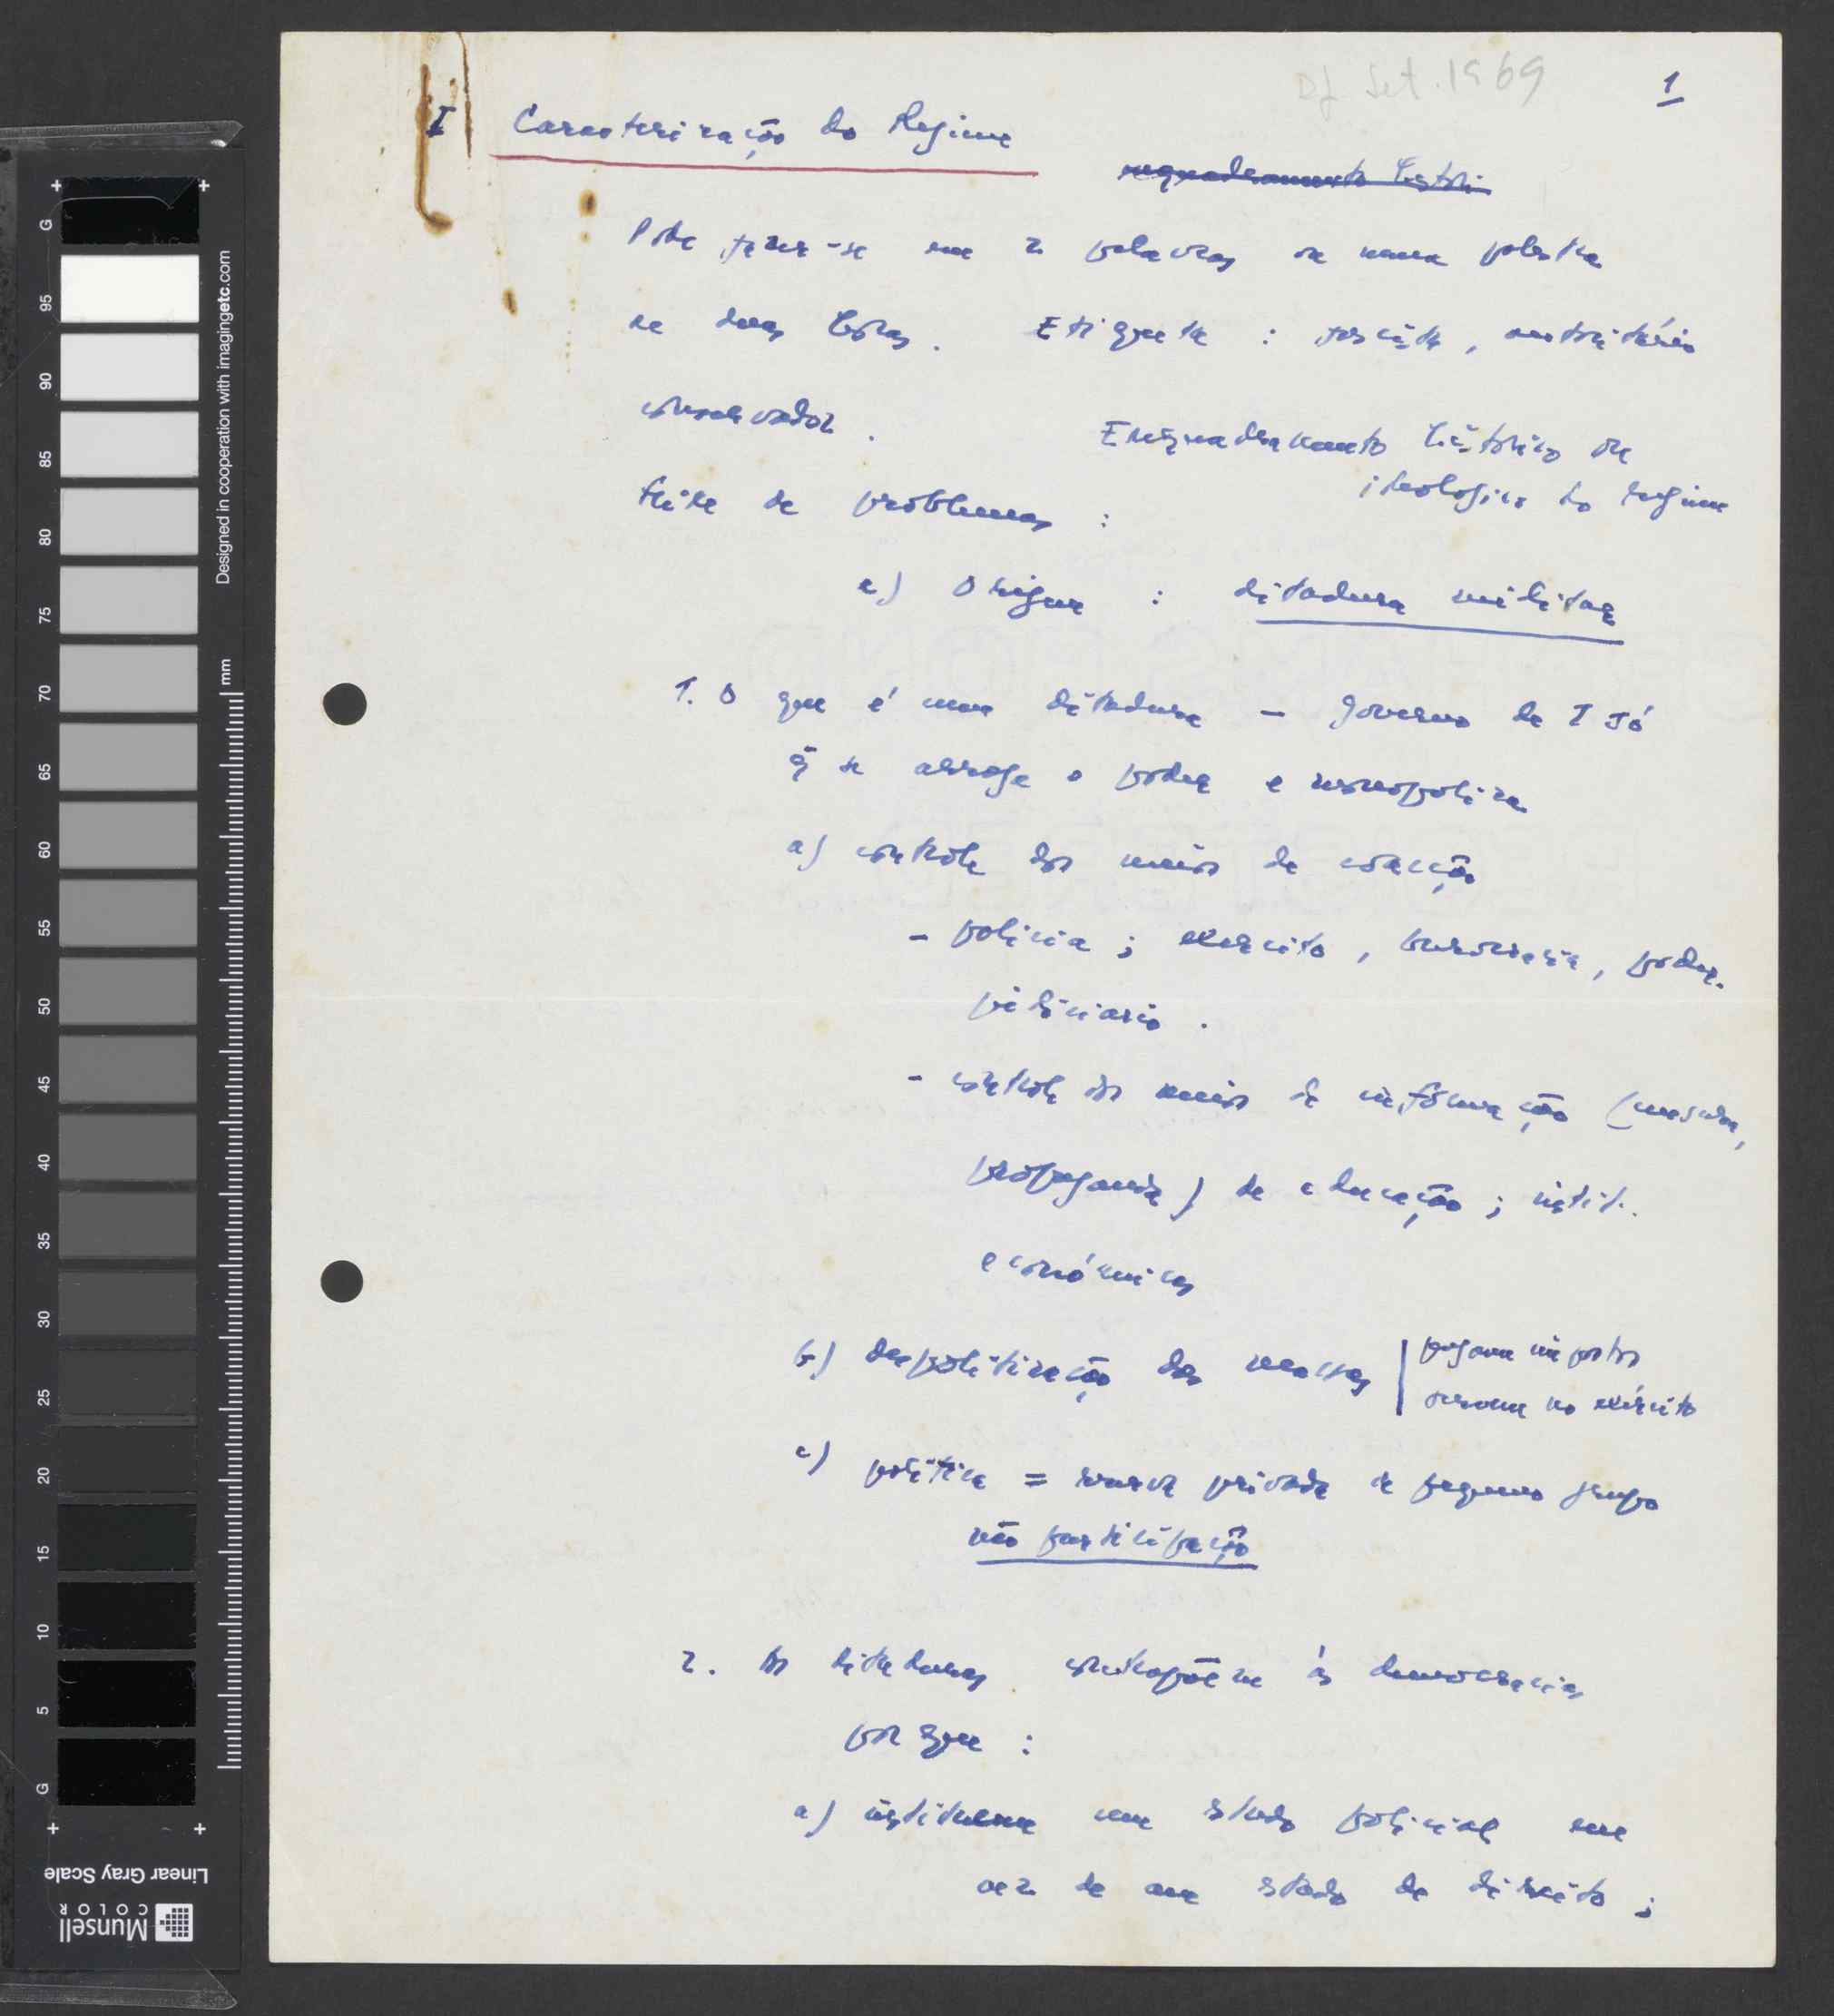 Df Set. 1969
1
I Caracterização do Regime
enquadramento histori
Pode fazer-se em 2 palavras ou numa palestra
de duas horas. Etiqueta : fascista, autoritário
conservador.
Enquadramento histórico ou
ideologico do regime
Série de problemas :
a) Origem : ditadura militar
1. O que é uma ditadura — governo de 1 só
q̃ se arroga o poder e monopoliza
a) contrôle dos meios de coacção
- policia ; exercito, burocracia, poder
judiciario.
- contrôle dos meios de informação (censura,
propaganda) de educação ; instit.
económicas
b) despolitização das massas | pagam impostos
servem no exército
c) politica = coutada privada de pequeno grupo
não participação
2. As ditaduras contrapõem às democracias
porque :
a) instituem um estado policial em
vez de um estado de direito ;
G
95
90
85
80
75
70
65
60
55
50
45
40
35
30
25
20
15
10
5
G
mm
Designed in cooperation with imagingetc.com
Linear Gray Scale
Munsell
COLOR